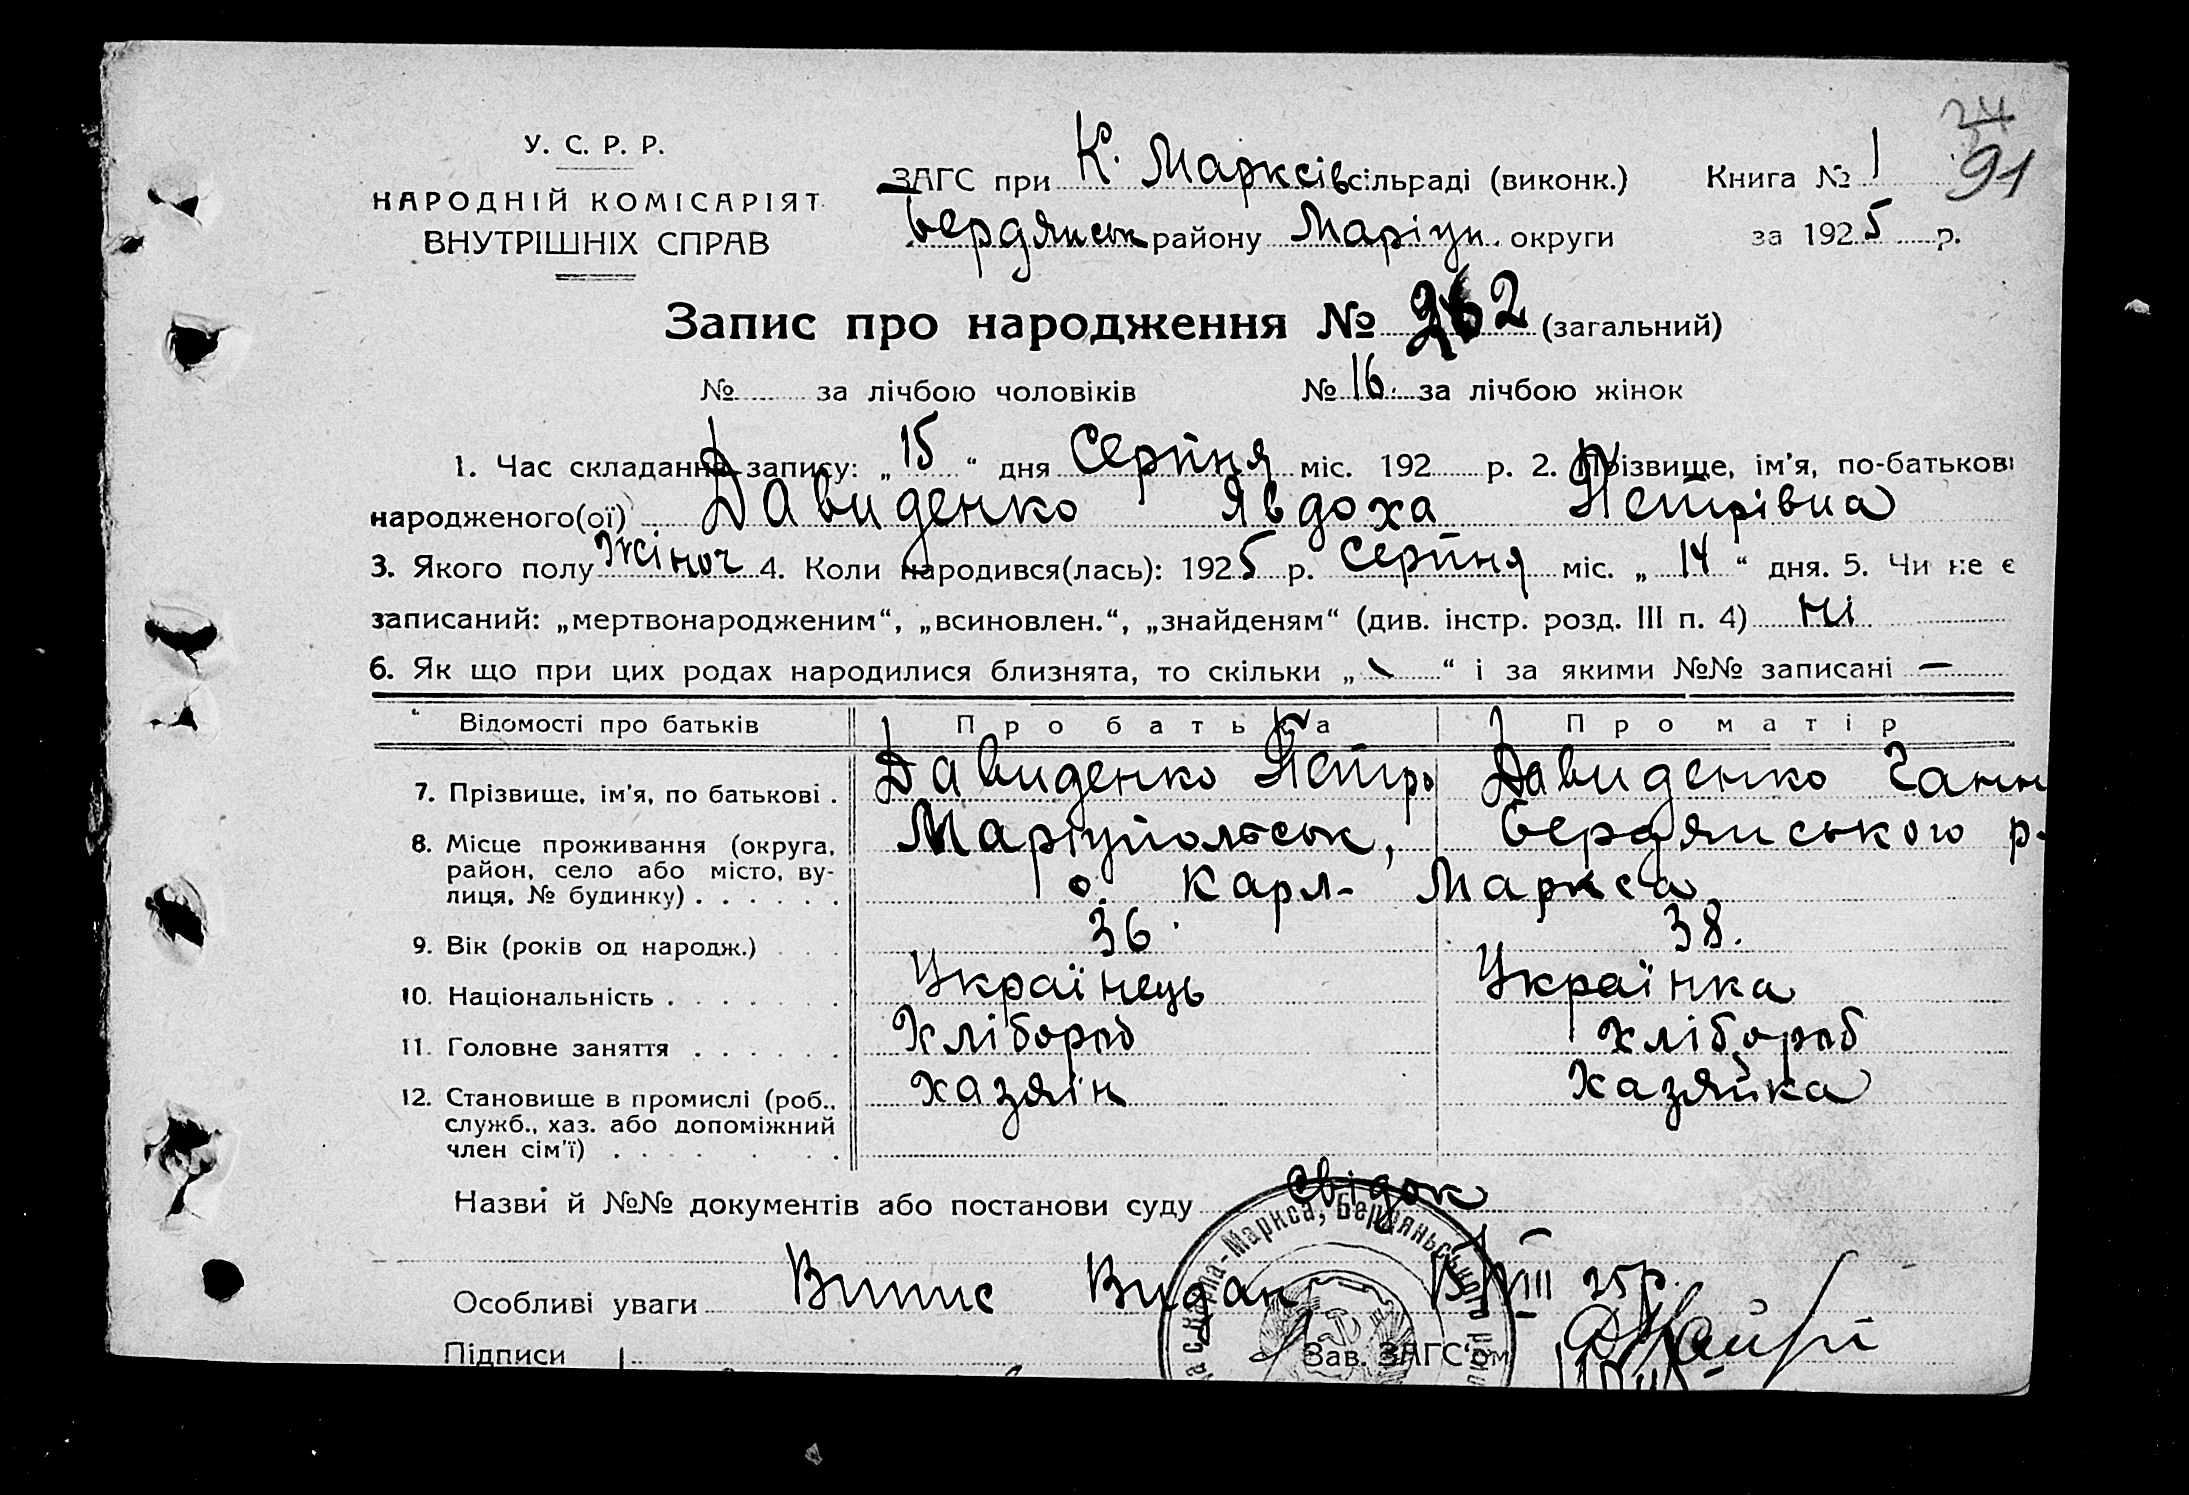 24
91
У. С. Р. Р.
НАРОДНІЙ КОМІСАРІЯТ
ВНУТРІШНІХ СПРАВ
ЗАГС при К. Марксів сільраді (виконк.) Книга № 1
Бердянськ району Маріуп. округи за 1925 р.
Запис про народження № 262 (загальний)
№ за лічбою чоловіків № 16. за лічбою жінок
1. Час складання запису: „15“ дня Серпня міс. 192 р. 2. Прізвище, ім'я, по-батькові
народженого(ої) Давиденко Явдоха Петрівна
3. Якого полу Жіноч 4. Коли народився(лась): 1925 р. Серпня міс. „14“ дня. 5. Чи не є
записаний: „мертвонародженим“, „всиновлен.“, „знайденям“ (див. інстр. розд. III п. 4) Ні
6. Як що при цих родах народилися близнята, то скільки „ “ і за якими №№ записані —
Відомості про батьків Про батька Про матір
7. Прізвище, ім'я, по батькові . Давиденко Петро Давиденко Ганн
8. Місце проживання (округа, Маріупольськ, Бердянського р.
район, село або місто, ву-
лиця, № будинку) . . . . . . с. Карл- Маркса
9. Вік (років од народж.) . . . 36. 38.
10. Національність . . . . . . . Українець Українка
11. Головне заняття . . . . . . Хлібороб хлібороб
12. Становище в промислі (роб., хазяїн Хазяйка
служб., хаз. або допоміжний
член сім'ї) . . . . . . . .
Назви й №№ документів або постанови суду свідок
с. Карла-Маркса, Бердяньського
Особливі уваги Випис Видан 15/VIII 25р.
Підписи Зав. ЗАГС'ом